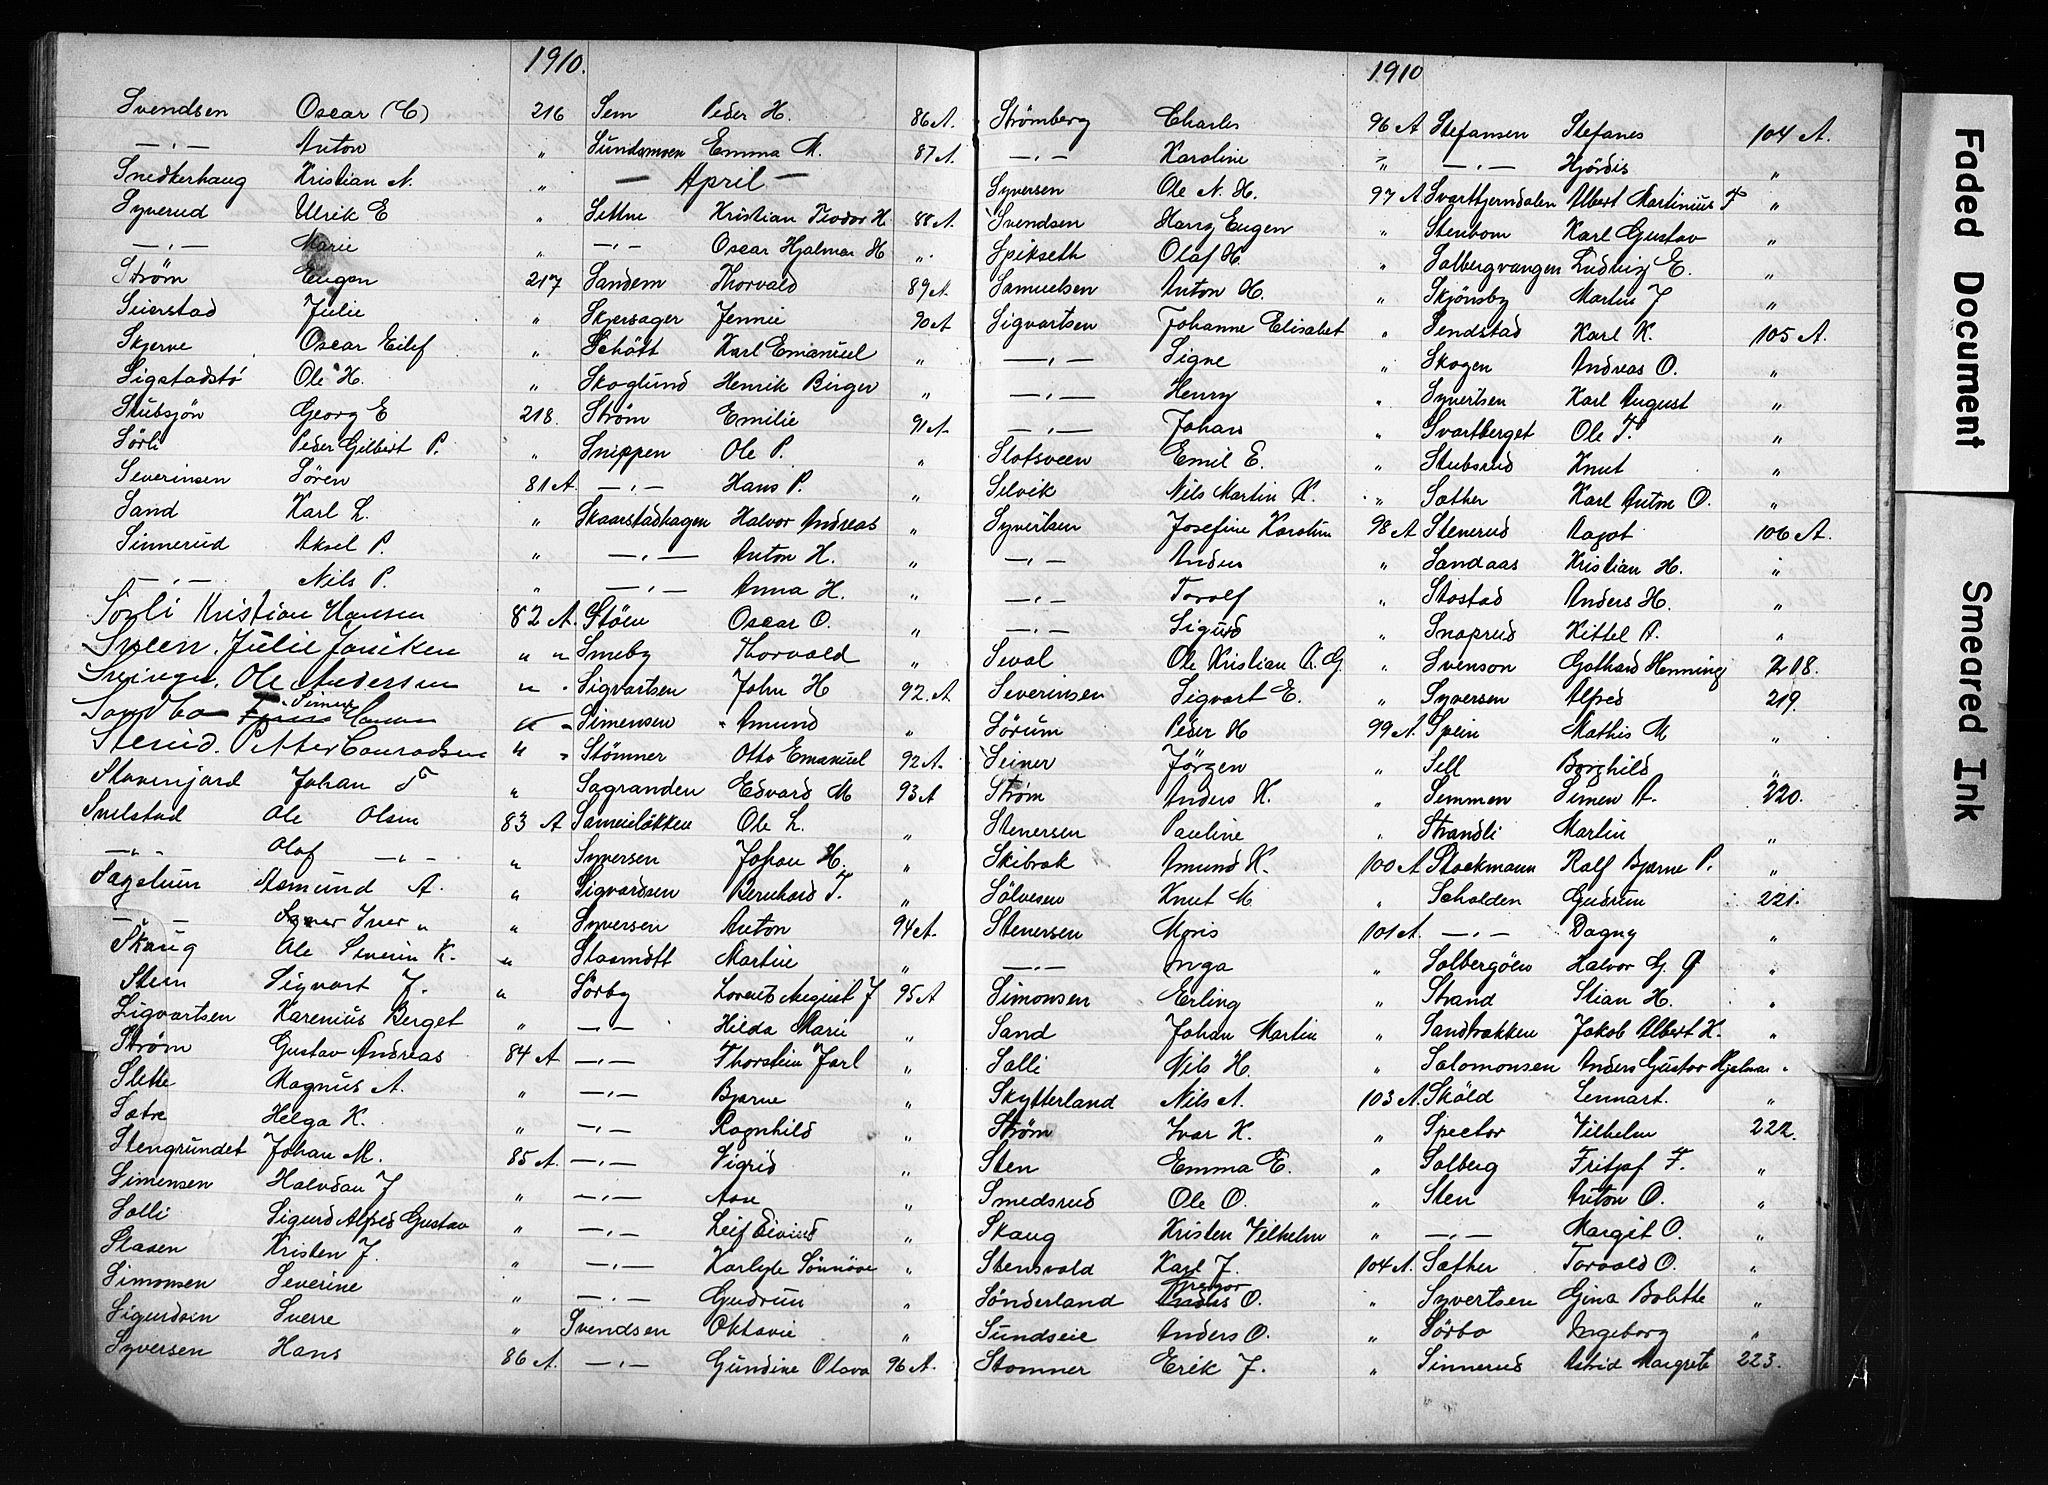 1910.
Svendsen Oscar (C) 216
—„— Anton „
Snedkerhaug Kristian N. „
Syverud Ulrik E „
—„— Marie „
Strøm Eugen 217
Seierstad Julie „
Skjerve Oscar Eilif „
Sigstadstö Ole H. „
Stubsjön Georg E 218
Sörli Peder Gilbert P. „
Severinsen Sören 81 A.
Sand Karl L. „
Sinnerud Aksel P. „
—„— Nils P. „
Sörli Kristian Hansen 82 A.
Sveen. Julie Janiken „ „
Ole Andersen „ „
Sandbo Simen Hansen „ „
Sterud. Petter Conradsen „ „
Stavenjord Johan T „
Snilstad Ole Olsen 83 A
—„— Olaf —„— „
Fagelun Asmund A. „
—„— Iver „ „
Skaug Ole Severin K. „
Sten Sigvart J. „
Sigvartsen Karenius Berget „
Strøm Gustav Andreas 84 A
Slette Magnus A. „
Sætre Helga K. „
Stengrundet Johan M. 85 A.
Simensen Halvdan J „
Solli Sigurd Alfred Gustav „
Staxen Kristen J. „
Simonsen Severine „
Sigurdsen Sverre „
Syversen Hans 86 A.
Sem Peder H. 86 A.
Sundsmoen Emma M. 87 A.
— April —
Settne Kristian Teodor H. 88 A.
—„— Oscar Hjalmar H „
Sandem Thorvald 89 A.
Skjersager Jennie 90 A
Schött Karl Emanuel „
Skoglund Henrik Birger „
Strøm Emilie 91 A.
Snippen Ole P. „
—„— Hans P. „
Skaarstadhagen Halvor Andreas „
—„— Anton H. „
—„— Anna H. „
Stöen Oscar O. „
Smeby Thorvald „
Sigvartsen John H 92. A
Simensen Amund „
Stömner Otto Emanuel 92 A.
Sagranden Edvard M 93 A
Sameielökken Ole L. „
Syversen Johan H. „
Sigvardsen Bernhard T. „
Syversen Anton 94 A.
Staamott Martin „
Sörby Lorents August J 95 A
—„— Hilda Marie „
—„— Thorstein Jarl „
—„— Bjarne „
—„— Ragnhild „
—„— Sigrid „
—„— Aase „
—„— Leif Eivind „
—„— Karlyle Sönnöve „
—„— Gudrun „
Svendsen Oktavie „
—„— Gundine Olava 96 A.
1910
Strömberg Charles 96 A
—„— Karoline „
Syversen Ole N. H. 97 A
Svendsen Harry Eugen „
Spikseth Olaf H. „
Samuelsen Anton H. „
Sigvartsen Johanne Elisabet „
—„— Signe „
—„— Henry „
—„— Johan „
Slotsveen Emil E. „
Selvik Nils Martin K. „
Syvertsen Josefine Karoline 98 A
—„— Anders „
—„— Torolf „
—„— Sigurd „
Seval Ole Kristian K. G. „
Severinsen Sigvart E. „
Sörum Peder H 99 A.
Seiner Jörgen „
Strøm Anders K. „
Stenersen Pauline „
Skibrek Amund K. 100 A
Sölvesen Knut M „
Stenersen Moris 101 A.
—„— Inga „
Simonsen Erling „
Sand Johan Martin „
Solli Nils H. „
Skytterland Nils A. 103 A.
Strøm Ivar K. „
Sten Emma E. „
Smedsrud Ole O. „
Skaug Kristen Vilhelm „
Stensvold Karl J. 104 A.
Sönderland Gregor O. „
Sundseie Anders O. „
Stomner Erik J. „
Stefansen Stefanes 104 A.
—„— Hjördis „
Svarttjerndalen Albert Martinius F „
Stenbom Karl Gustav „
Solbergvangen Ludvig E. „
Skjönsby Martin J „
Sendstad Karl K. 105 A.
Skogen Andreas O. „
Syvertsen Karl August „
Svartberget Ole T. „
Stubsrud Knut „
Sæther Karl Anton O. „
Stenerud Aagot 106 A.
Sandaas Kristian H. „
Stostad Anders H. „
Snaprud Kittel A. „
Svenson Gothard Henning 218.
Syversen Alfred 219.
Svein Mathis M „
Sell Borghild „
Semmen Simen A. 220.
Strandli Martin „
Stockmann Ralf Bjarne P. „
Scholden Gudrun 221.
—„— Dagny „
Solbergöen Halvor G. G „
Strand Stian H. „
Sandbakken Jakob Albert K. „
Salomonsen Anders Gustav Hjalmar „
Sköld Lennart. „
Spector Vilhelm 222.
Solberg Fritjof F. „
Sten Anton O. „
—„— Margit O. „
Sæther Torvald O. „
Syvertsen Gina Bolette „
Sörbo Ingeborg „
Sinnerud Astrid Margrete 223.
Faded Document
Smeared Ink